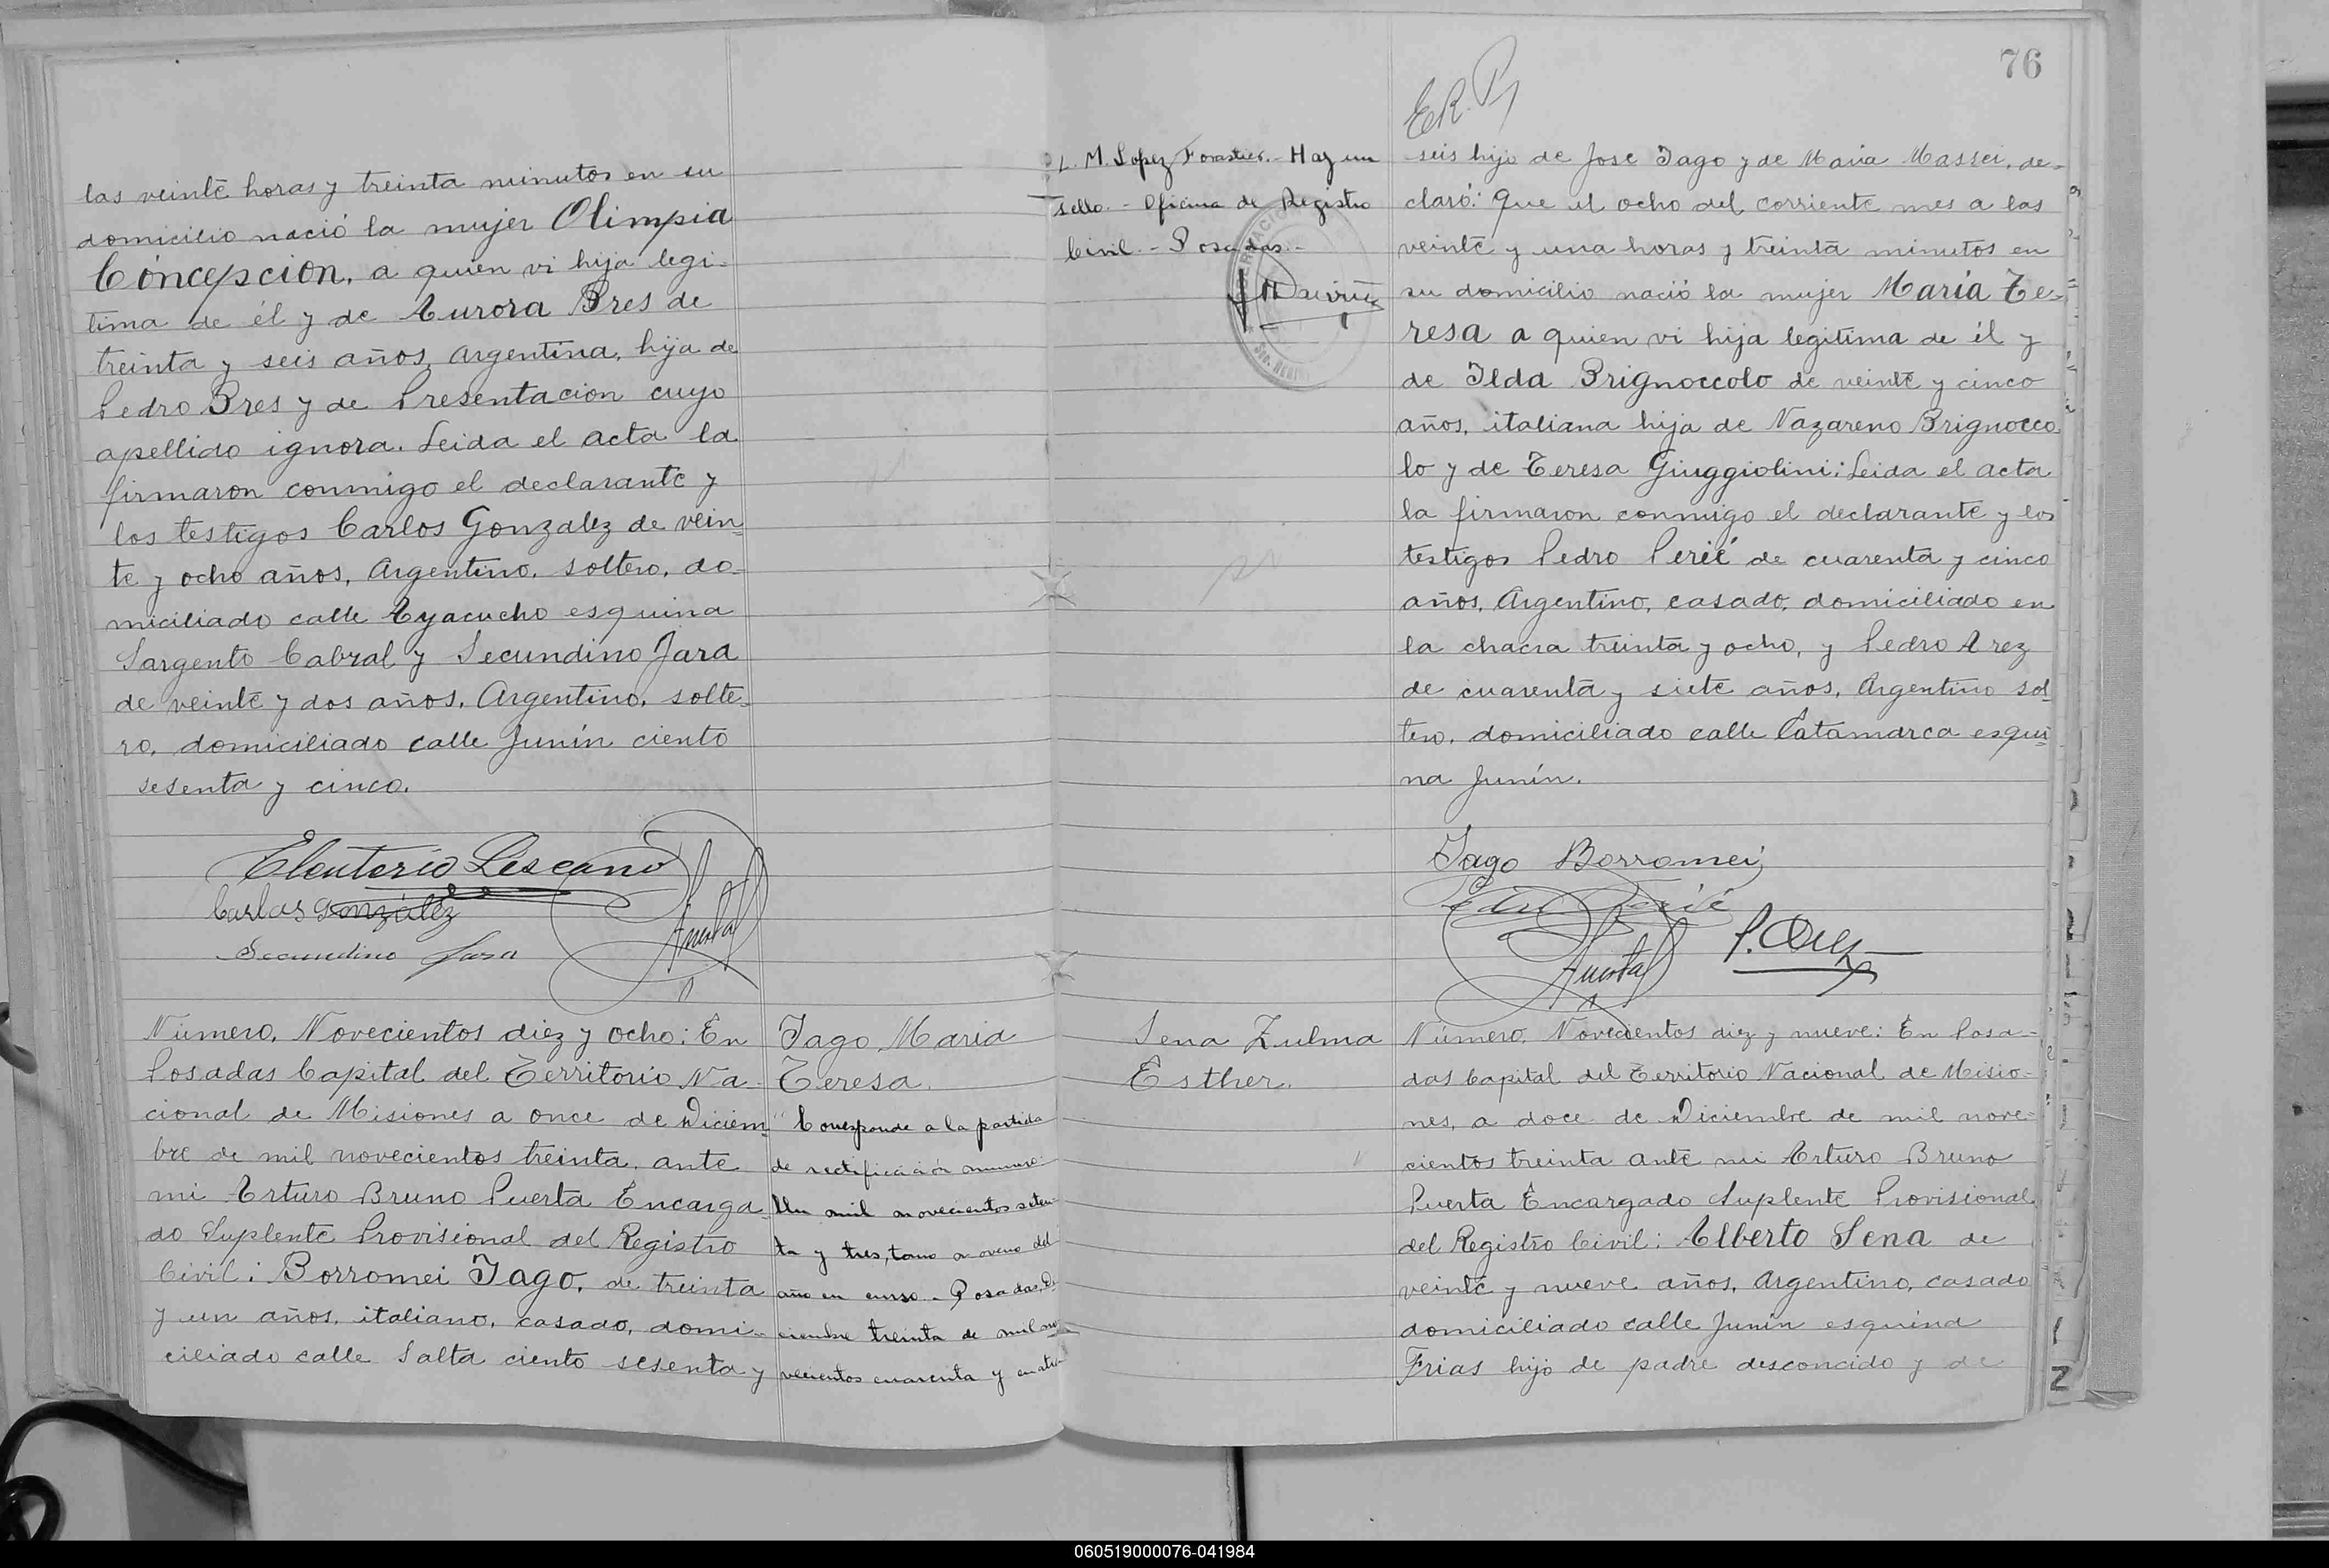 las veinte horas y treinta minutos en su
domicilio nació la mujer Olimpia
Concepcion, a quien vi hija legi-
tima de él y de Aurora Bres de
treinta y seis años, Argentina, hija de
Pedro Bres y de Presentacion cuyo
apellido ignora. Leida el acta la
firmaron conmigo el declarante y
los testigos Carlos Gonzalez de vein
te y ocho años, Argentino, soltero, do-
miciliado calle Ayacucho esquina
Sargento Cabral y Secundino Jara
de veinte y dos años, Argentino, solte-
ro, domiciliado calle Junín ciento
sesenta y cinco.
Eleuterio Lescano
Carlos González
Secundino Jara
Puerta
Número, Novecientos diez y ocho: En
Posadas Capital del Territorio Na-
cional de Misiones a once de Diciem
bre de mil novecientos treinta, ante
mi Arturo Bruno Puerta Encarga-
do Suplente Provisional del Registro
Civil: Borromei Iago, de treinta
y un años, italiano, casado, domi-
ciliado calle Salta ciento sesenta y
Iago Maria
Teresa.
"Corresponde a la partida
de rectificación numero
Un mil novecientos seten-
ta y tres, tomo noveno del
año en curso.- Posadas, Di-
ciembre treinta de mil no-
vecientos cuarenta y cuatro-
76
E.R.P.
L. M. Lopez Forastier.- Hay un
sello.- Oficina de Registro
Civil.- Posadas.-
seis hijo de Jose Iago y de Maria Massei, de-
claró: Que el ocho del corriente mes a las
veinte y una horas y treinta minutos en
su domicilio nació la mujer María Te-
resa a quien vi hija legitima de él y
de Ilda Brignoccolo de veinte y cinco
años, italiana hija de Nazareno Brignocco
lo y de Teresa Giuggiolini: Leida el acta
la firmaron conmigo el declarante y los
testigos Pedro Perié de cuarenta y cinco
años, Argentino, casado, domiciliado en
la chacra treinta y ocho, y Pedro Arez
de cuarenta y siete años, Argentino sol
tero, domiciliado calle Catamarca esqui
na Junín.
Iago Borromei
Pedro Perié
Puerta
Sena Zulma
Esther.
Número, Novecientos diez y nueve: En Posa-
das Capital del Territorio Nacional de Misio-
nes, a doce de Diciembre de mil nove-
cientos treinta ante mi Arturo Bruno
Puerta Encargado Suplente Provisional
del Registro Civil: Alberto Sena de
veinte y nueve años, Argentino, casado
domiciliado calle Junín esquina
Frias hijo de padre desconcido y de
060519000076-041984